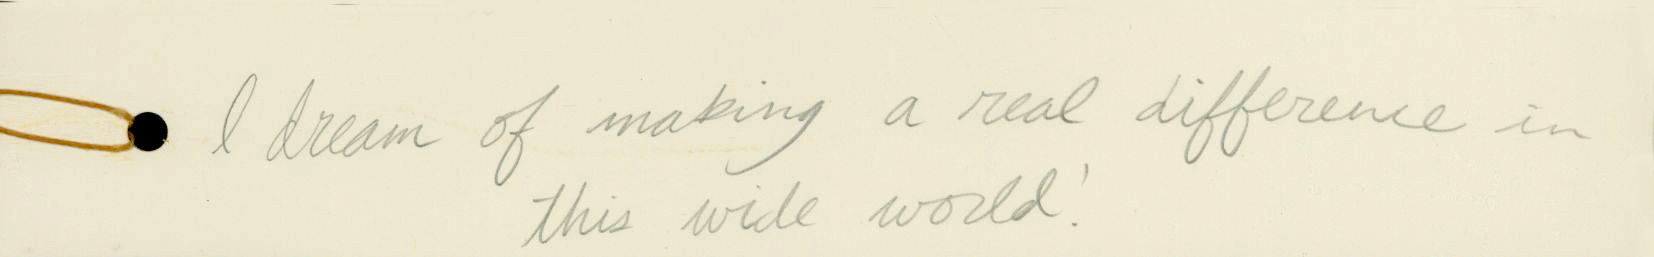 I dream of making a real difference in
this wide world!